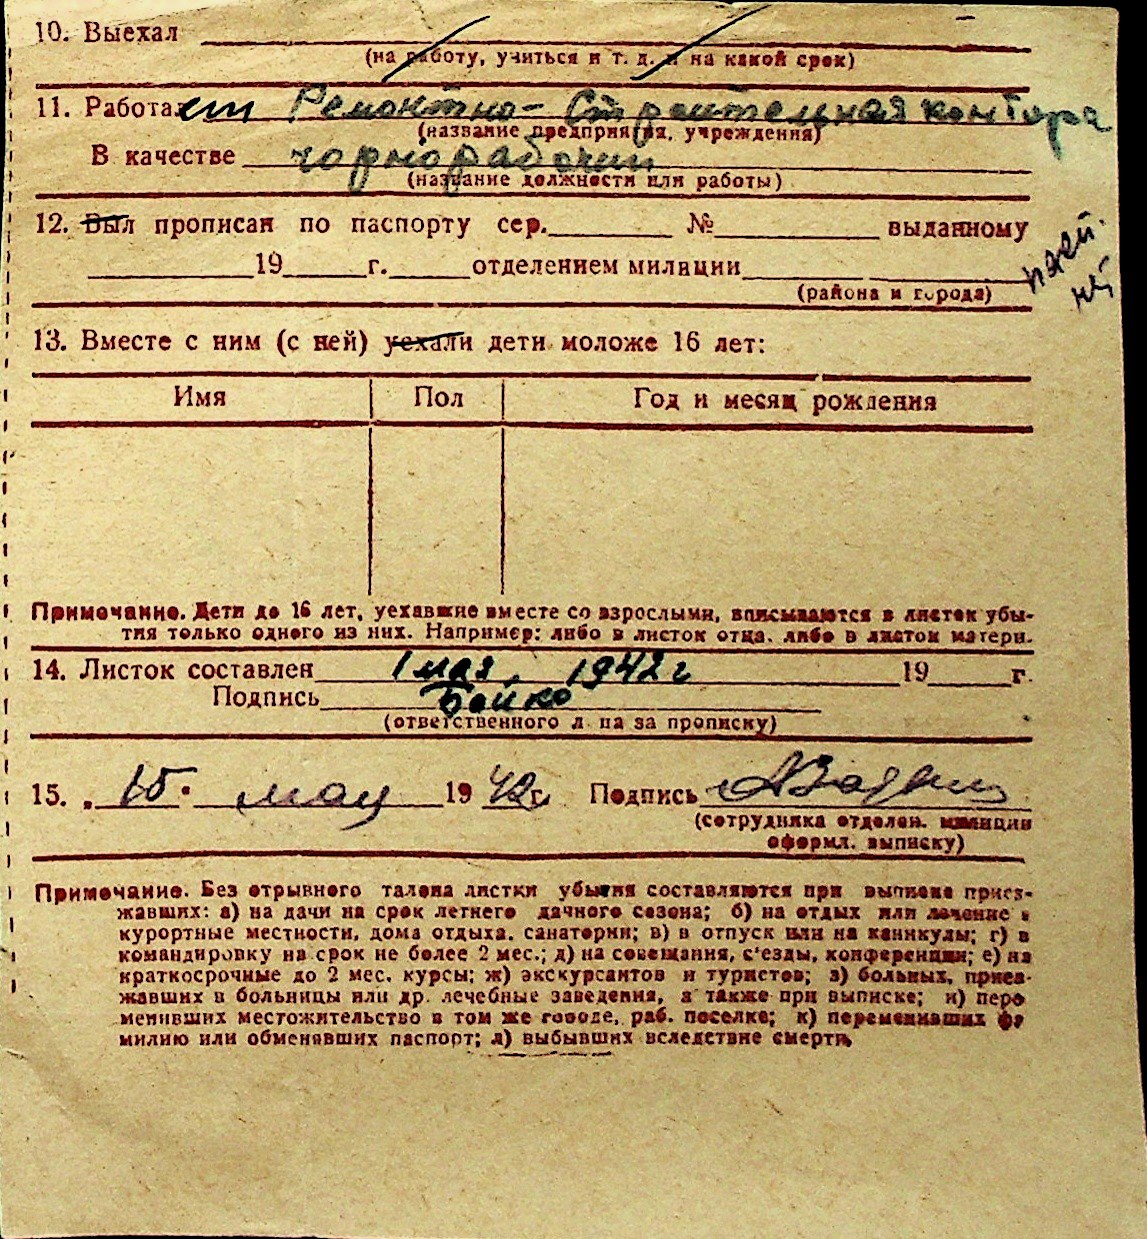 10. Выехал
(на работу, учиться и т. д. и на какой срок)
11. Работает Ремонтно-Строительная контора
(название предприятия, учреждения)
В качестве чорнорабочий
(название должности или работы)
12. Был прописан по паспорту сер. № выданному
19 г. отделением милиции
(района и города)
13. Вместе с ним (с ней) уехали дети моложе 16 лет:
Имя Пол Год и месяц рождения
Примечание. Дети до 16 лет, уехавшие вместе со взрослыми, вписываются в листок убы-
тия только одного из них. Например: либо в листок отца, либо в листок матери.
14. Листок составлен 1 мая 1942 г 19 г.
Подпись Бойко
(ответственного л па за прописку)
15. „ 15 " мая 19 42 г. Подпись
(сотрудника отделен. милиции
оформл. выписку)
Примечание. Без отрывного талона листки убытия составляются при выписке приез-
жавших: а) на дачи на срок летнего дачного сезона; б) на отдых или лечение в
курортные местности, дома отдыха, санатории; в) в отпуск или на каникулы; г) в
командировку на срок не более 2 мес.; д) на совещания, с'езды, конференции; е) на
краткосрочные до 2 мес. курсы; ж) экскурсантов и туристов; з) больных, приез-
жавших в больницы или др. лечебные заведения, а также при выписке; и) пере
менивших местожительство в том же городе, раб. поселке; к) переменивших фа
милию или обменявших паспорт; л) выбывших вследствие смерти.